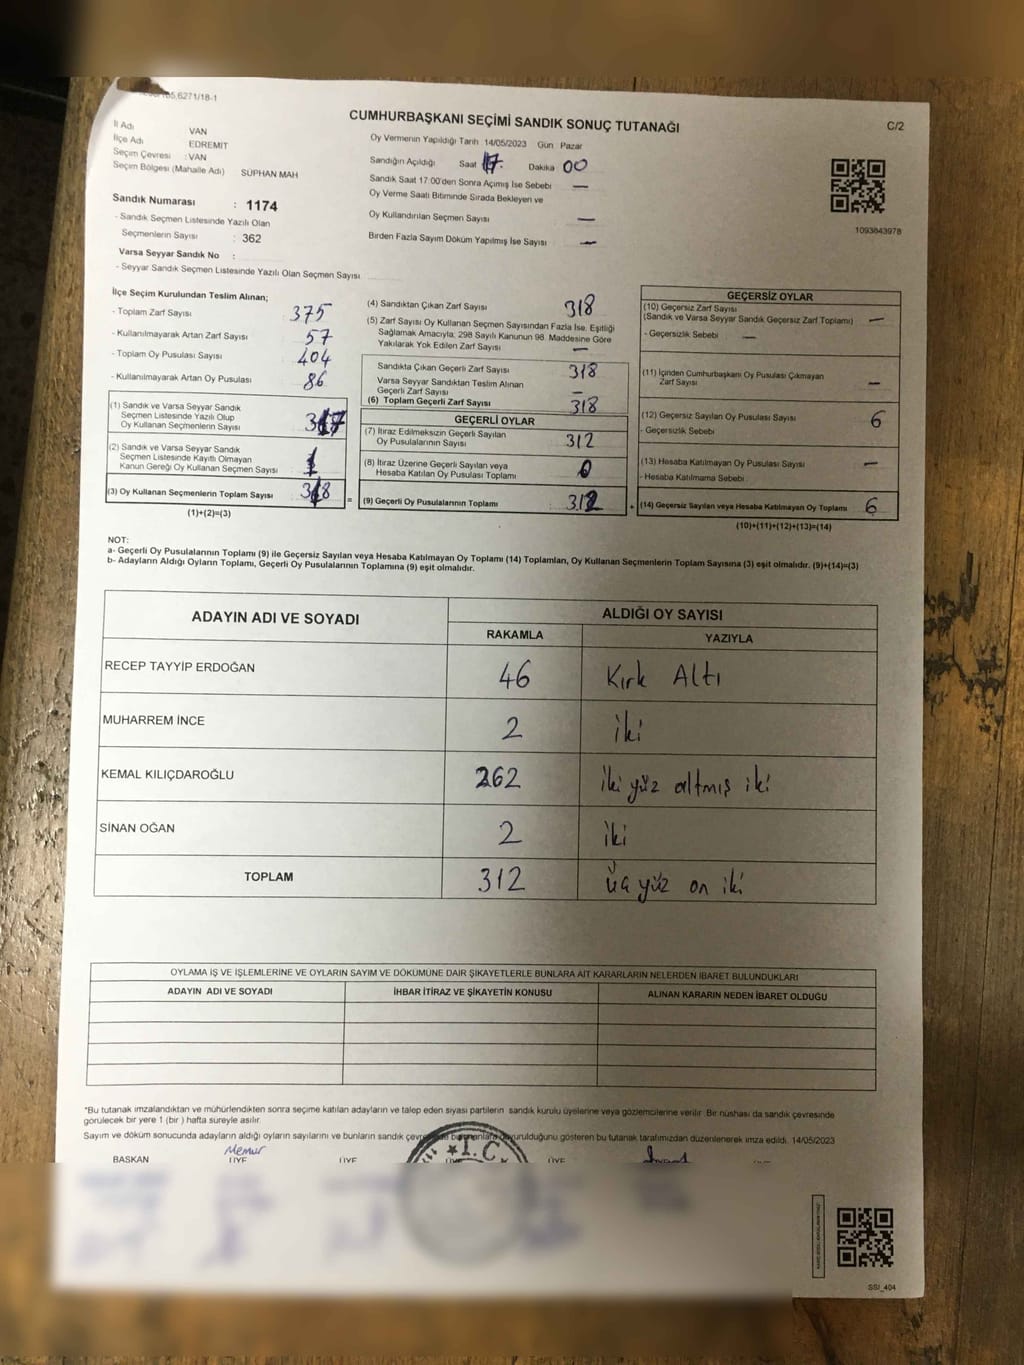 6271/18-1
CUMHURBAŞKANI SEÇİMİ SANDIK SONUÇ TUTANAĞI
C/2
İl Adı VAN
İlçe Adı EDREMIT
Seçim Çevresi : VAN
Seçim Bölgesi (Mahalle Adı) SÜPHAN MAH
Sandık Numarası : 1174
- Sandık Seçmen Listesinde Yazılı Olan
Seçmenlerin Sayısı : 362
Varsa Seyyar Sandık No :
- Seyyar Sandık Seçmen Listesinde Yazılı Olan Seçmen Sayısı
Oy Vermenin Yapıldığı Tarih 14/05/2023 Gün Pazar
Sandığın Açıldığı Saat 17. Dakika 00
Sandık Saat 17:00'den Sonra Açımış İse Sebebi —
Oy Verme Saati Bitiminde Sırada Bekleyen ve
Oy Kullandırılan Seçmen Sayısı —
Birden Fazla Sayım Döküm Yapılmış İse Sayısı —
1093843978
İlçe Seçim Kurulundan Teslim Alınan;
- Toplam Zarf Sayısı 375
- Kullanılmayarak Artan Zarf Sayısı 57
- Toplam Oy Pusulası Sayısı 404
- Kullanılmayarak Artan Oy Pusulası 86
(1) Sandık ve Varsa Seyyar Sandık
Seçmen Listesinde Yazılı Olup
Oy Kullanan Seçmenlerin Sayısı 317
(2) Sandık ve Varsa Seyyar Sandık
Seçmen Listesinde Kayıtlı Olmayan
Kanun Gereği Oy Kullanan Seçmen Sayısı 1
(3) Oy Kullanan Seçmenlerin Toplam Sayısı 318 =
(1)+(2)=(3)
(4) Sandıktan Çıkan Zarf Sayısı 318
(5) Zarf Sayısı Oy Kullanan Seçmen Sayısından Fazla İse, Eşitliği
Sağlamak Amacıyla, 298 Sayılı Kanunun 98. Maddesine Göre
Yakılarak Yok Edilen Zarf Sayısı —
Sandıkta Çıkan Geçerli Zarf Sayısı 318
Varsa Seyyar Sandıktan Teslim Alınan
Geçerli Zarf Sayısı —
(6) Toplam Geçerli Zarf Sayısı 318
GEÇERLİ OYLAR
(7) İtiraz Edilmeksizin Geçerli Sayılan
Oy Pusulalarının Sayısı 312
(8) İtiraz Üzerine Geçerli Sayılan veya
Hesaba Katılan Oy Pusulası Toplamı 0
(9) Geçerli Oy Pusulalarının Toplamı : 312 +
GEÇERSİZ OYLAR
(10) Geçersiz Zarf Sayısı
(Sandık ve Varsa Seyyar Sandık Geçersiz Zarf Toplamı) —
- Geçersizlik Sebebi —
(11) İçinden Cumhurbaşkanı Oy Pusulası Çıkmayan
Zarf Sayısı —
(12) Geçersiz Sayılan Oy Pusulası Sayısı 6
- Geçersizlik Sebebi
(13) Hesaba Katılmayan Oy Pusulası Sayısı —
- Hesaba Katılmama Sebebi
(14) Geçersiz Sayılan veya Hesaba Katılmayan Oy Toplamı 6
(10)+(11)+(12)+(13)=(14)
NOT:
a- Geçerli Oy Pusulalarının Toplamı (9) ile Geçersiz Sayılan veya Hesaba Katılmayan Oy Toplamı (14) Toplamları, Oy Kullanan Seçmenlerin Toplam Sayısına (3) eşit olmalıdır. (9)+(14)=(3)
b- Adayların Aldığı Oyların Toplamı, Geçerli Oy Pusulalarının Toplamına (9) eşit olmalıdır.
ADAYIN ADI VE SOYADI ALDIĞI OY SAYISI
RAKAMLA YAZIYLA
RECEP TAYYİP ERDOĞAN 46 Kırk Altı
MUHARREM İNCE 2 iki
KEMAL KILIÇDAROĞLU 262 iki yüz altmış iki
SİNAN OĞAN 2 iki
TOPLAM 312 üç yüz on iki
OYLAMA İŞ VE İŞLEMLERİNE VE OYLARIN SAYIM VE DÖKÜMÜNE DAİR ŞİKAYETLERLE BUNLARA AİT KARARLARIN NELERDEN İBARET BULUNDUKLARI
ADAYIN ADI VE SOYADI İHBAR İTİRAZ VE ŞİKAYETİN KONUSU ALINAN KARARIN NEDEN İBARET OLDUĞU
*Bu tutanak imzalandıktan ve mühürlendikten sonra seçime katılan adayların ve talep eden siyasi partilerin sandık kurulu üyelerine veya gözlemcilerine verilir. Bir nüshası da sandık çevresinde
görülecek bir yere 1 (bir) hafta süreyle asılır.
Sayım ve döküm sonucunda adayların aldığı oyların sayılarını ve bunların sandık duyurulduğunu gösteren bu tutanak tarafımızdan düzenlenerek imza edildi. 14/05/2023
T.C.
Memur
BAŞKAN ÜYE ÜYE ÜYE ÜYE
SSI_404